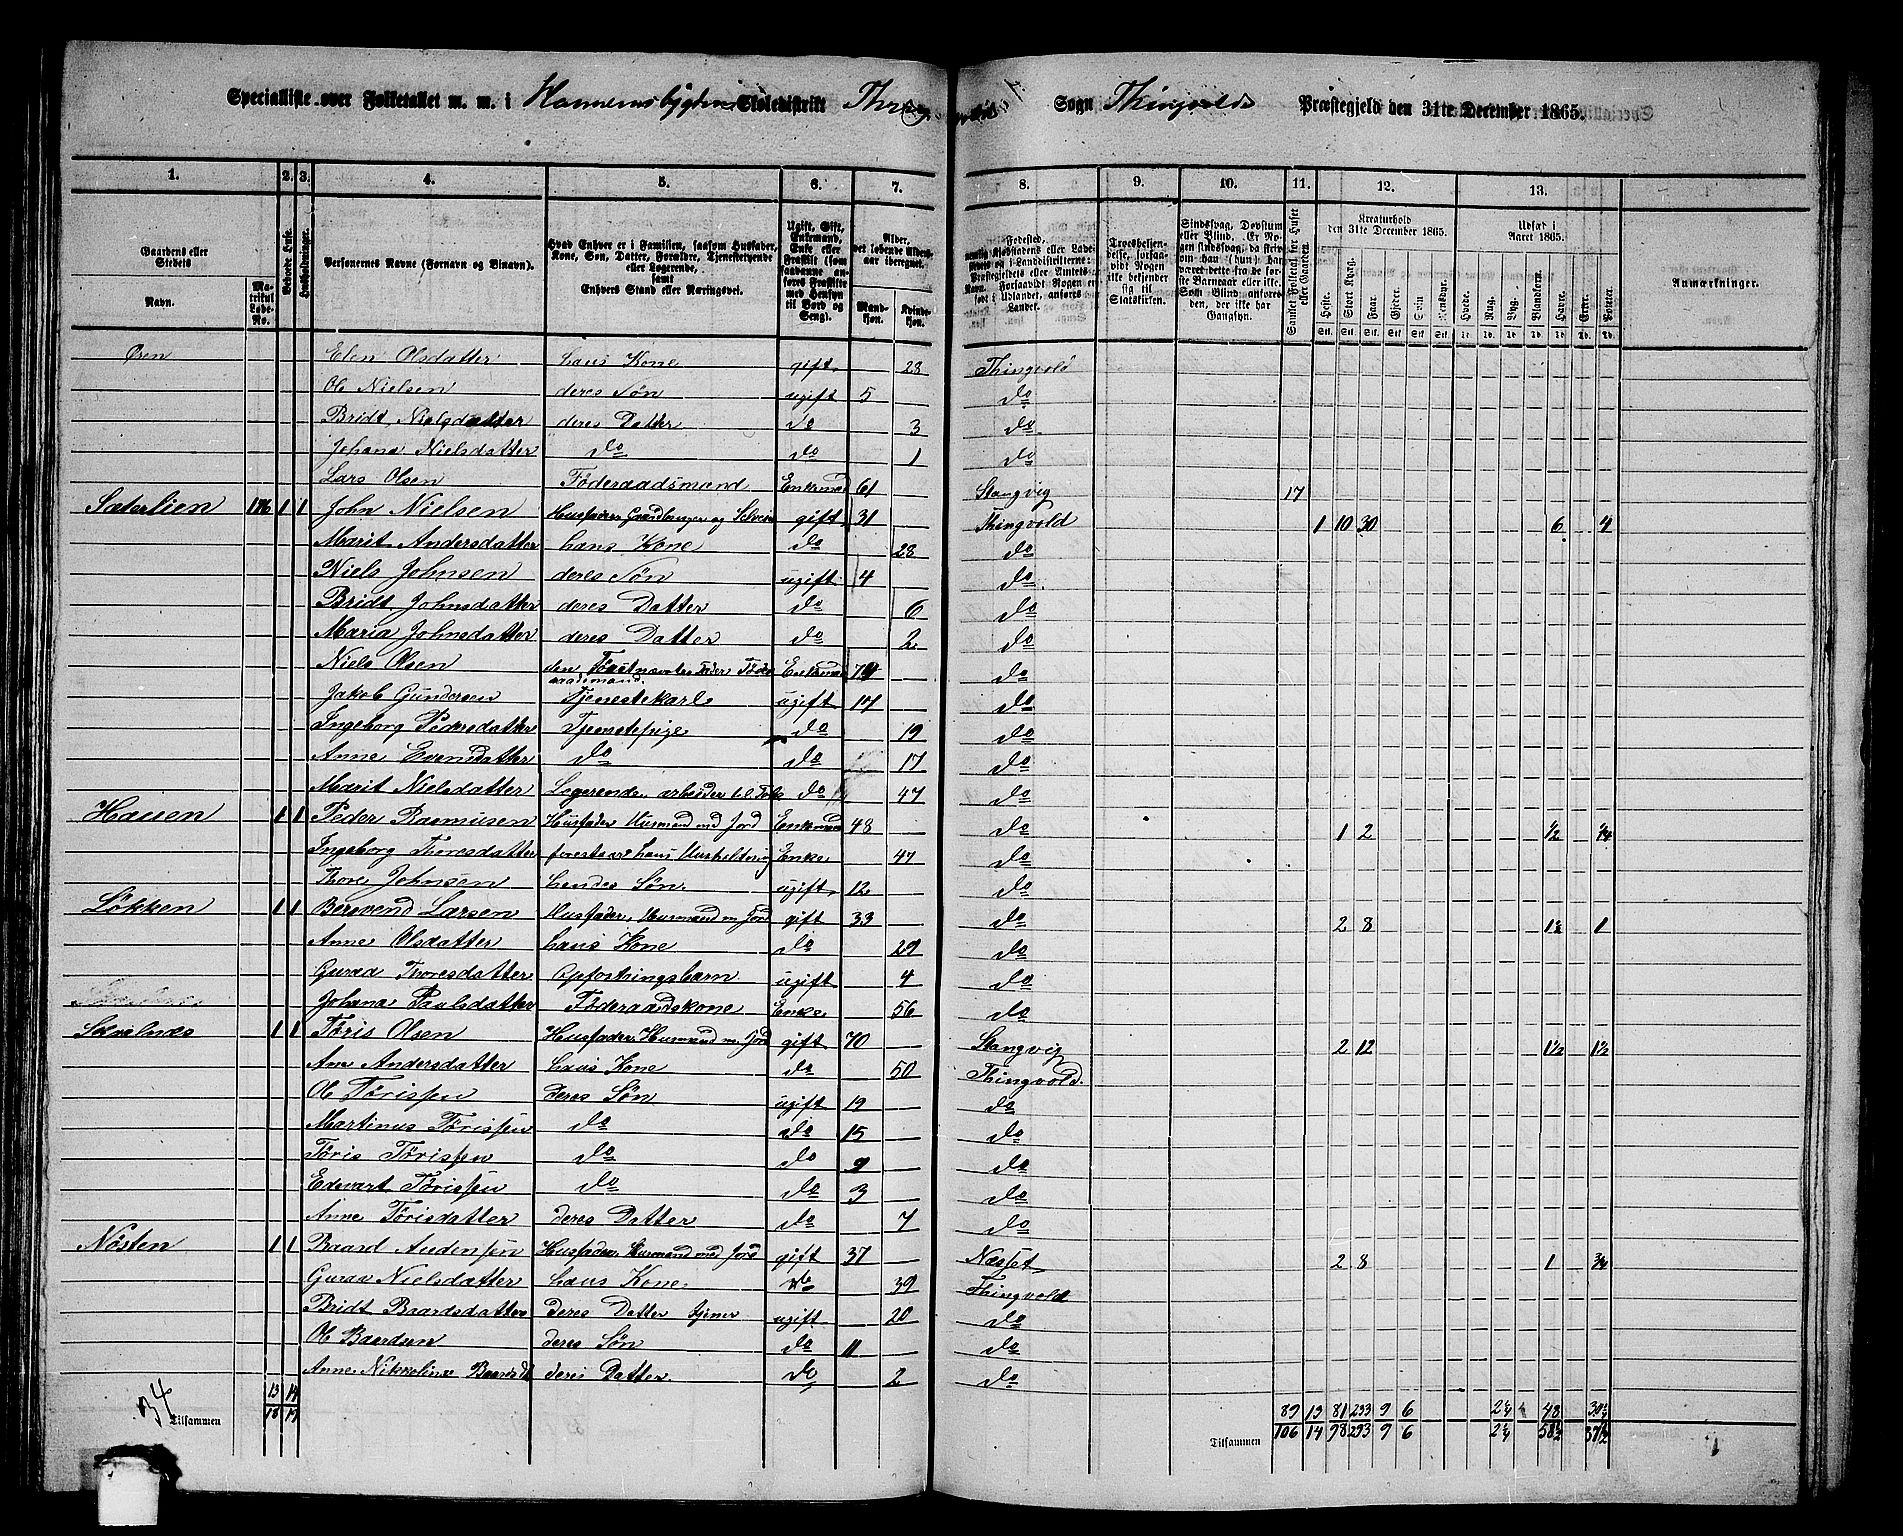 Specialliste over Folketallet m. m. i Skoledistrikt Thingvold Sogn Thingvolds Præstegjeld den 31te December 1865.
1. 2. 3. 4. 5. 6. 7. 8. 9. 10. 11. 12. 13.
Gaardens eller Stedets
Navn.
Matrikul Løbe-No.
Beboede Huse.
Husholdninger.
Personernes Navne (Fornavn og Binavn).
Hvad Enhver er i Familien, saasom Husfader, Kone, Søn, Datter, Forældre, Tjenestetyende eller Logerende, samt Enhvers Stand eller Næringsvei.
Ugift, Gift, Enkemand, Enke eller Fraskilt (som saadanne anføres Fraskilte med Hensyn til Bord og Seng).
Alder, det løbende Aldersaar iberegnet.
Mandkjøn. Kvindekjøn.
Troesbekjendelse, forsaavidt Nogen ikke bekjender sig til Statskirken.
Samlet Folketal for Huset eller Gaarden.
Kreaturhold den 31te December 1865.
Udsæd i Aaret 1865.
Heste. Stort Kvæg. Faar. Gjeder. Svin. Rensdyr. Hvede. Rug. Byg. Blandkorn. Havre. Erter. Poteter.
Anmærkninger.
Øren Elen Olsdatter hans Kone gift 28 Thingvold
Ole Nielsen deres Søn ugift 5 do
Bridt Nielsdatter deres Datter do 3 do
Johana Nielsdatter do do 1 do
Lars Olsen Föderaadsmand Enkemd 61 Stangvig 17
Sæterlien 176 1 1 John Nielsen Husfader Gaardbruger og Selveier gift 31 Thingvold 1 10 30 6 4
Marit Andersdatter hans Kone do 28 do
Niels Johnsen deres Søn ugift 4 do
Bridt Johnsdatter deres Datter do 6 do
Maria Johnsdatter deres Datter do 2 do
Niels Olsen den Førstnævntes Fader Föderaadsmand. Enkemd do
Jakob Gundersen Tjenestekarl ugift 17 do
Ingeborg Pedersdatter Tjenestepige do 19 do
Anne Evensdatter do do 17 do
Marit Nielsdatter Logerende, arbeider til Folk do 47 do
Hauen 1 1 Peder Rasmusen Husfader Husmand md Jord Enkemand 48 do 1 2 1/2 1/4
Ingeborg Thoresdatter forestaar hans Husholdning Enke 47 do
Thore Johnsen hendes Søn ugift 12 do
Løkken 1 1 Bersvend Larsen Husfader, Husmand m Jord gift 33 do 2 8 1 1/2 1
Anne Olsdatter hans Kone do 29 do
Guraa Thoresdatter Opfostringsbarn ugift 4 do
Johana Paulsdatter Föderaadskone Enke 56 do
1 1 Tøris Olsen Husfader Husmand m Jord gift 70 Stangvig 2 12 1 1/2 1 1/2
Ane Andersdatter hans Kone do 50 Thingvold.
Ole Tørissen deres Søn ugift 19 do
Martinus Tørissen do do 15 do
Tøris Tørissen do do 9 do
Edevart Tørissen do do 3 do
Anne Törisdatter deres Datter do 7 do
Nøsten 1 1 Baard Andersen Husfader Husmand med Jord gift 37 Næsset 2 8 1 3/4
Guraa Nielsdatter hans Kone. do 39 Thingvold
Bridt Baardsdatter deres Datter tjener ugift 20 do
Ole Baardsen deres Søn do 11 do
Anne Nikkoline Baardsdt deres Datter. do 2 do
34 Tilsammen
13 14
18 19
89 13 81 233 9 6 2 1/4 48 30 1/4
Tilsammen 106 14 98 293 9 6 2 1/4 58 1/2 37 1/2